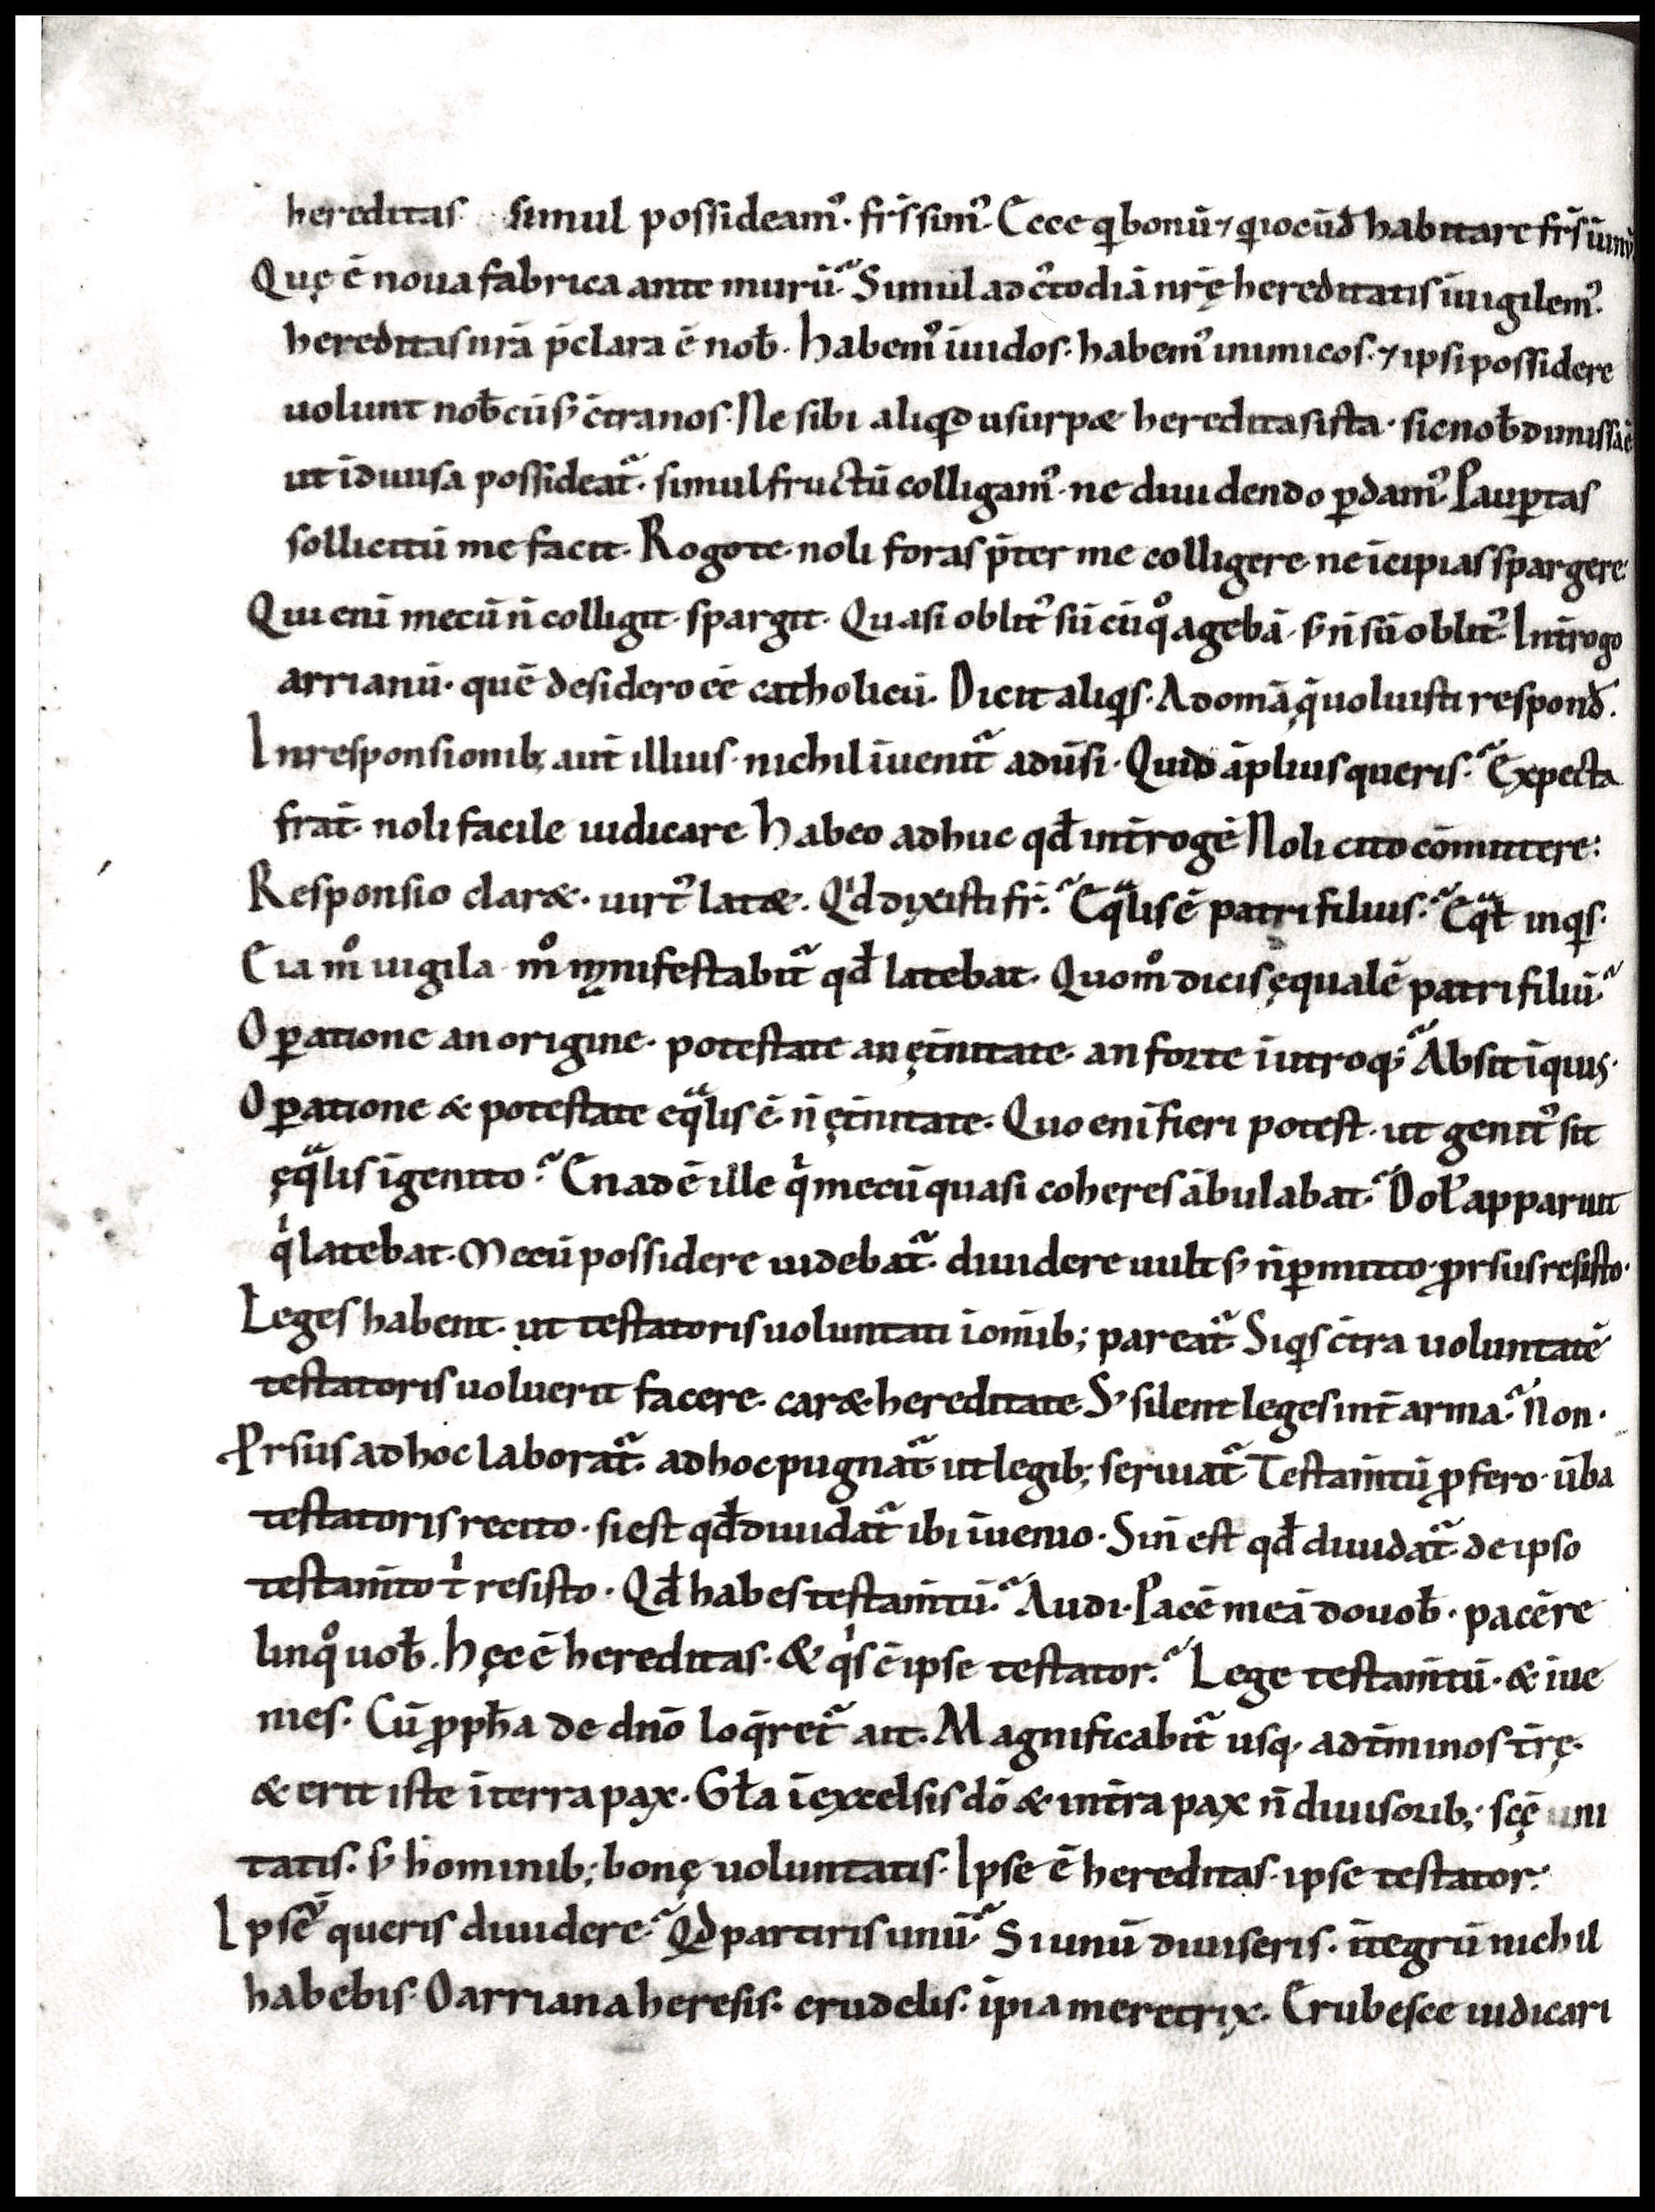 hereditas simul possideam᷒. fr̄s sim᷒. Ecce q̄ bonū ⁊ q̄ iocūd̄ habitare fr̄s ī un᷒
Quę ē noua fabrica ante murū? Simul ad c᷒todiā nr̄ę hereditatis īuigilem᷒.
hereditas nr̄a p̄clara ē nob̄. habem᷒ īuidos. habem᷒ inimicos. ⁊ ipsi possidere
uolunt nob̄cū s; c̄tra nos. Ne sibi aliqd̄ usurp& hereditas ista. sic nob̄ dimissa ē
ut īdiuisa possideat̄. simul fructū colligam᷒. ne diuidendo ꝑdam᷒. Pauꝑtas
sollicitū me facit. Rogo te. noli foras p̄ter me colligere ne īcipias spargere.
Qui enī mecū n̄ colligit. spargit. Quasi oblit᷒ sū cū qͦ agebā. s; n̄ sū oblit᷒. Int̄rogo
arrianū. quē desidero eē catholicū. Dicit aliqs. Ad om̄ā q̨ uoluisti respond̄.
In responsionib; aut̄ illius. nichil īuenit̄ adūsi. Quid āplius queris? Expecta
frat̄. noli facile iudicare. habeo adhuc qd̄ int̄rogē. Noli cito cōmittere.
Responsio clar&. uirt᷒ lat&. Qͥd dixisti fr̄? Eqͣlis ē patri filius? Eqͣt̄ inqs.
Eia mͦ uigila. mͦ manifestabit̄ qd̄ latebat. Quomͦ dicis ęqualē patri filiū?
Oꝑatione an origine. potestate an ęt̄nitate. an forte ī utroq;? Absit īquis.
Oꝑatione & potestate eqͣlis ē. n̄ ęt̄nitate. Quo enī fieri potest. ut genit᷒ sit
ęqͣlis īgenito? En ad ē ille qͥ mecū quasi coheres ābulabat? Dol᷒ apparuit
qͥ latebat. Mecū possidere uidebat̄. diuidere uult s; n̄ ꝑmitto. ꝓrsus resisto.
Leges habent. ut testatoris uoluntati ī om̄ib; pareat̄. Siqs c̄tra uoluntatē
testatoris uoluerit facere. car& hereditate. S; silent leges int̄ arma? Non.
Prsus ad hoc laborat̄. ad hoc pugnat̄ ut legib; seruiat̄. Testam̄tū ꝓfero. ūba
testatoris recito. si est qd̄ diuidat̄ ibi īuenio. Si n̄ est qd̄ diuidat̄. de ipso
testam̄to tͥ resisto. Qd̄ habes testam̄tū? Audi. Pacē meā do uob̄. pacē re
linqͦ uob̄. hęc ē hereditas. & qͥs ē ipse testator? Lege testam̄tū. & īue
nies. Cū ꝓph̄a de dn̄o loq̄ret̄ ait. Magnificabit̄ usq; ad t̄minos t̄rę.
& erit iste ī terra pax. Gl̄a ī excelsis dō & in t̄ra pax n̄ diuisorib; scę̄ uni
tatis. s; hominib; bonę uoluntatis. Ipse ē hereditas. ipse testator.
Ipsē queris diuidere? Qd̄ partiris unū? Si unū diuiseris. ītegrū nichil
habebis. O arriana heresis. crudelis. īpia meretrix. Erubesce iudicari